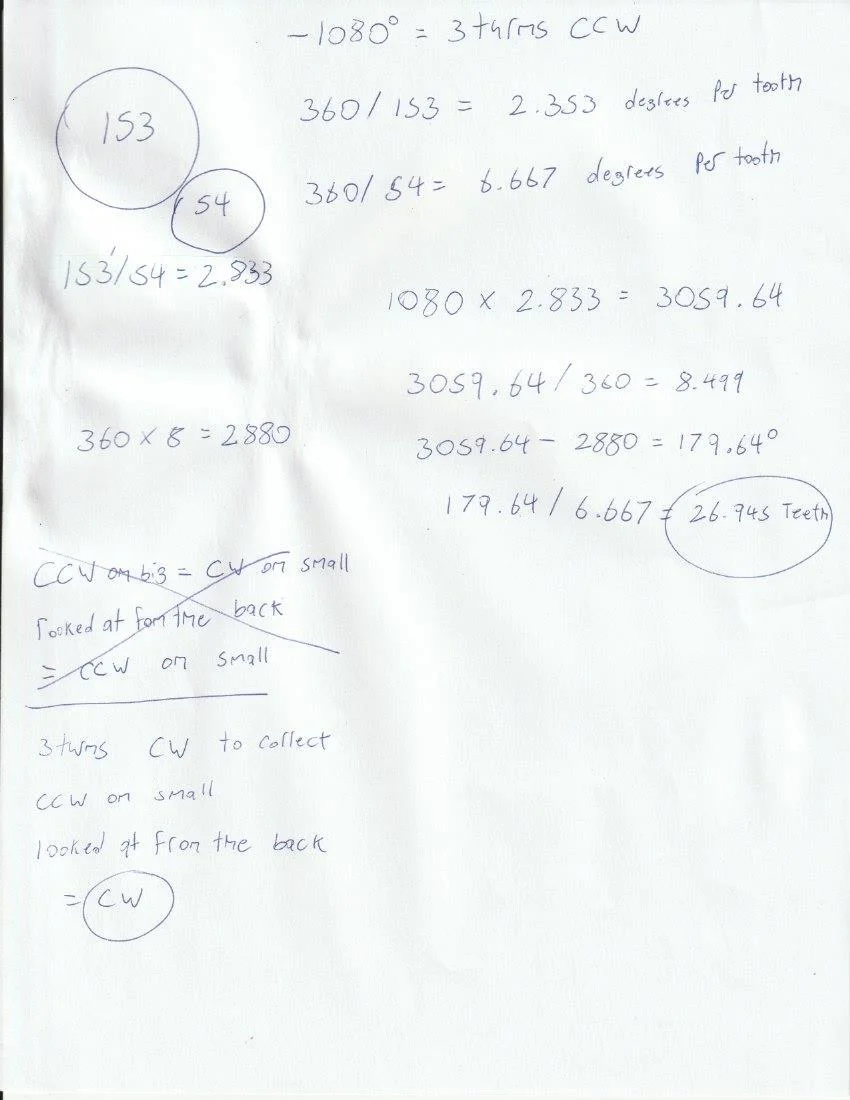 -1080° = 3 turns CCW
153
54
360/153 = 2.353 degrees per tooth
360/54 = 6.667 degrees per tooth
153/54 = 2.833
1080 × 2.833 = 3059.64
3059.64/360 = 8.499
360 × 8 = 2880
3059.64 - 2880 = 179.64°
179.64/6.667 = 26.945 Teeth
CCW on big = CW on small
looked at from the back
= CCW on small
3 turns CW to collect
CCW on small
looked at from the back
= CW